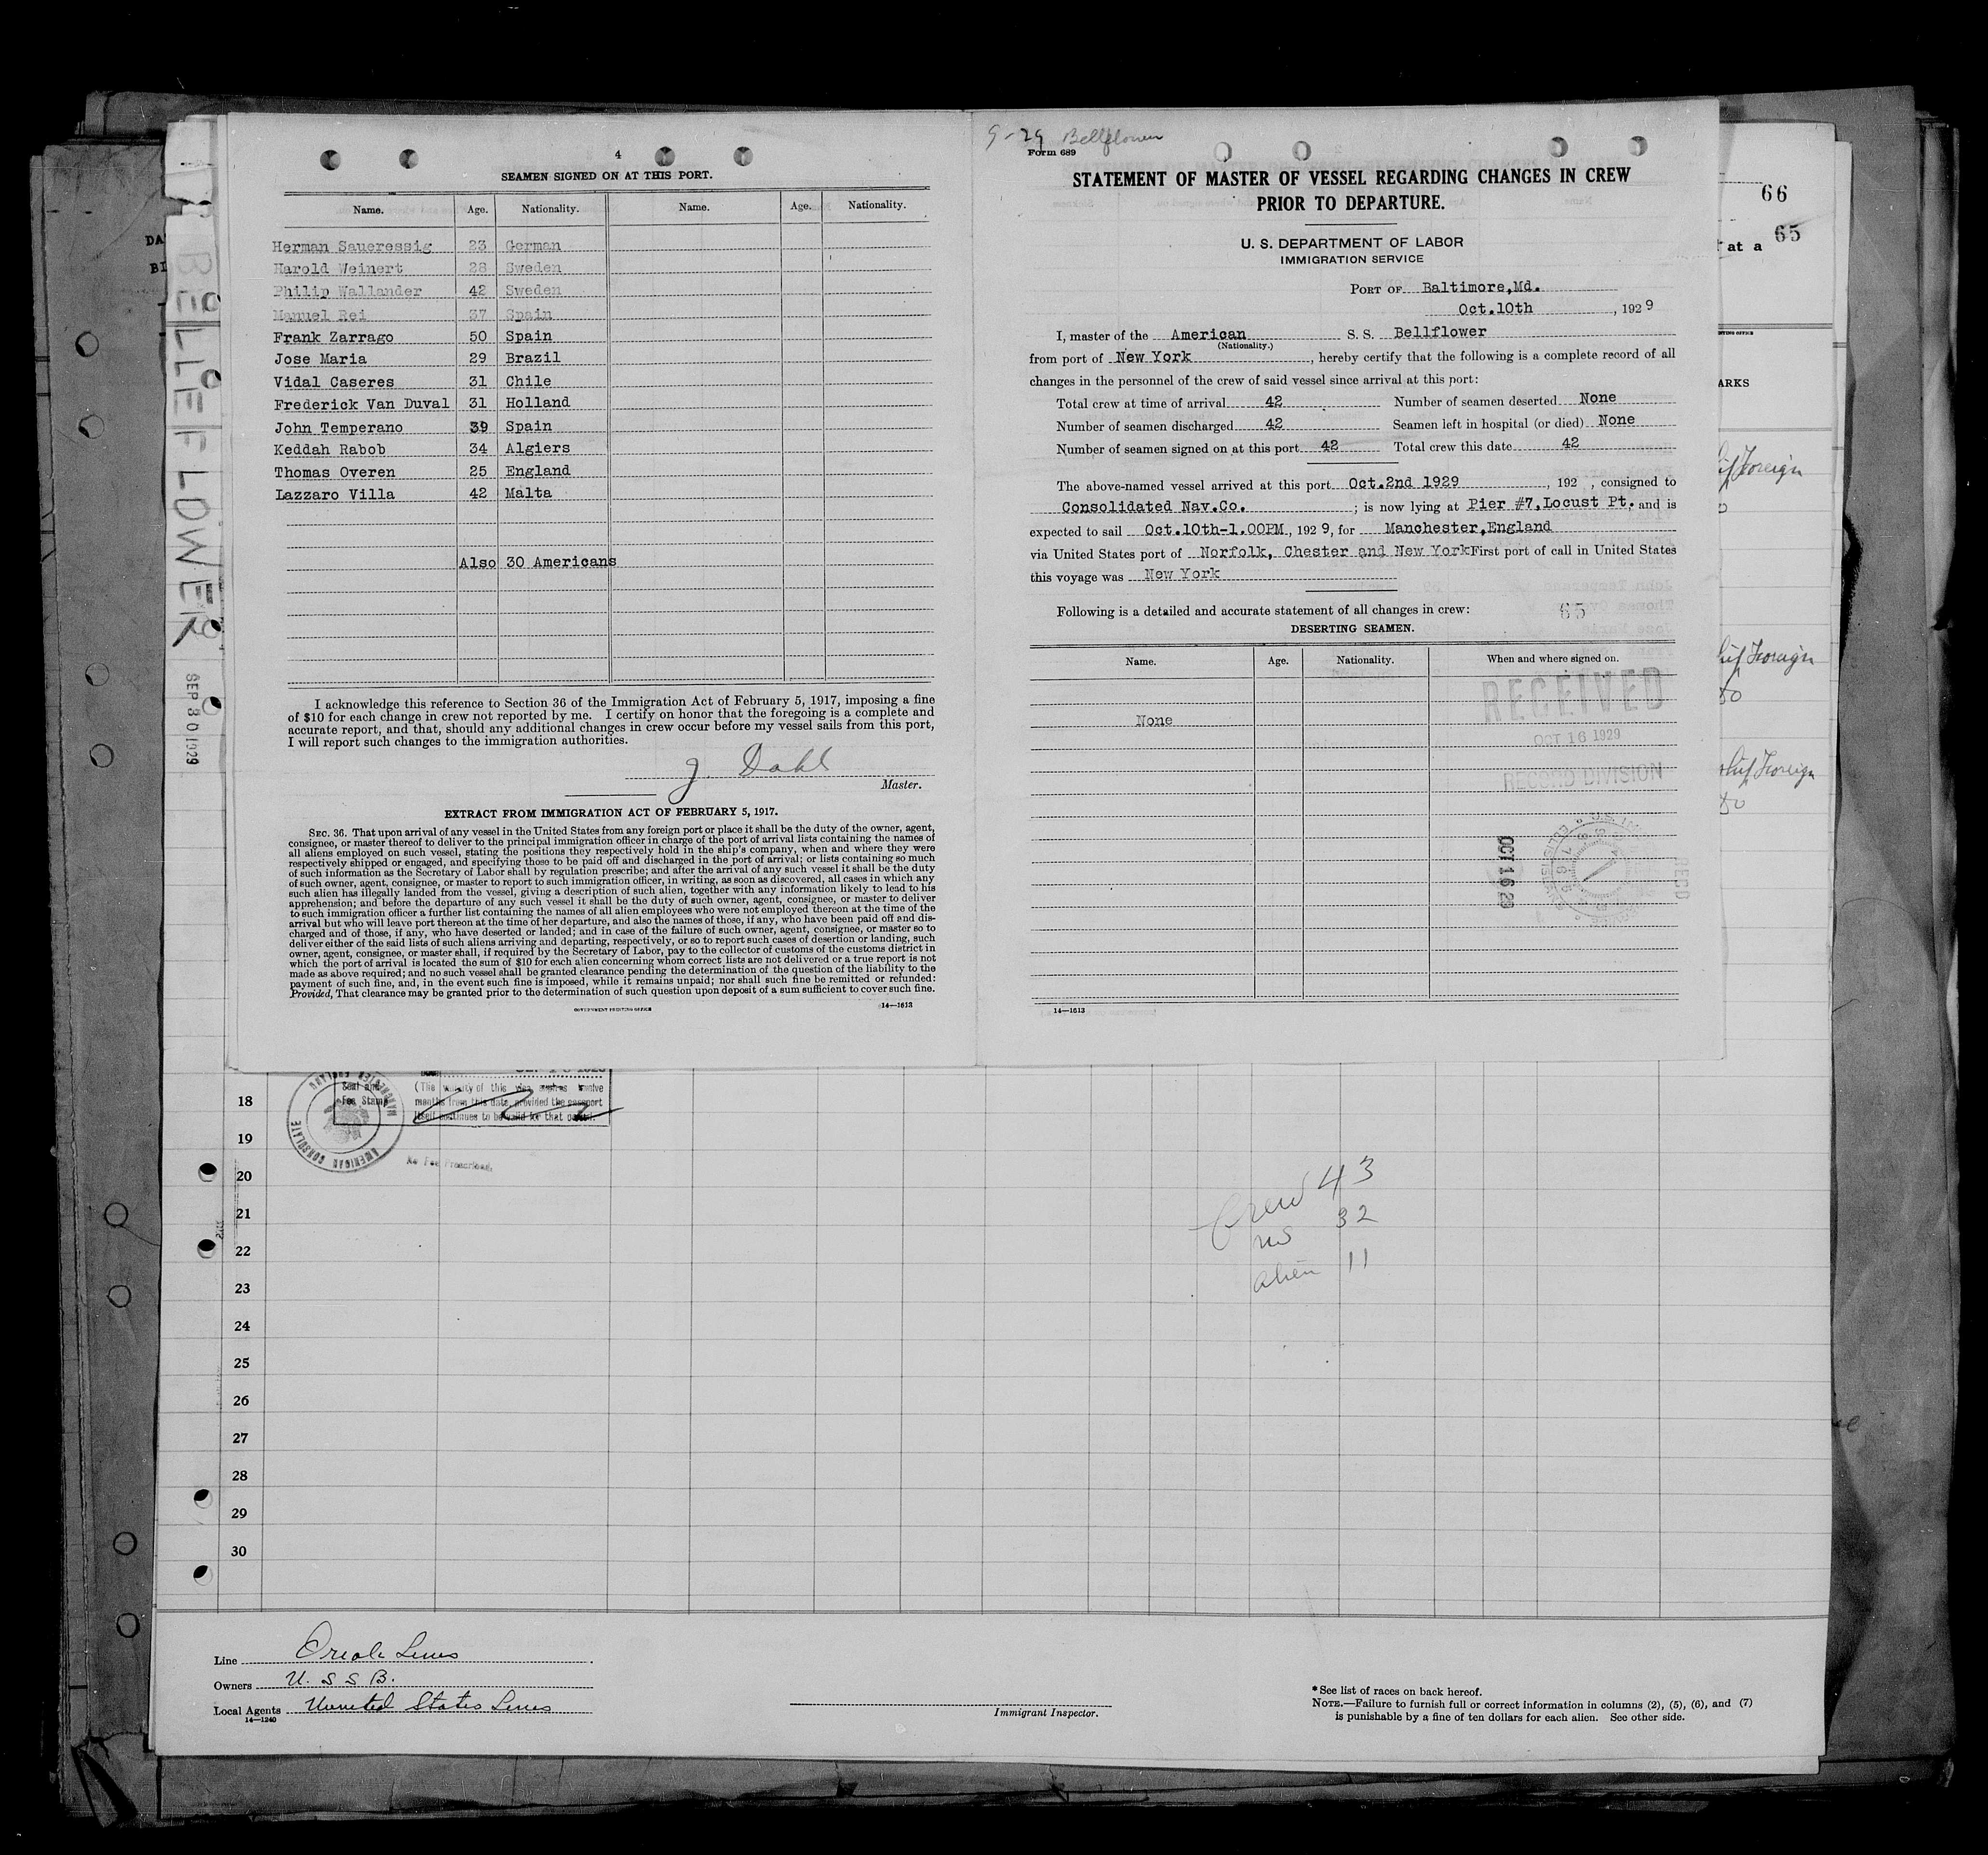 4
SEAMEN SIGNED ON AT THIS PORT.
Name. Age. Nationality. Name. Age. Nationality.
Herman Saueressig 23 German
Harold Weinert 28 Sweden
Philip Wallander 42 Sweden
Manuel Rei 37 Spain
Frank Zarrago 50 Spain
Jose Maria 29 Brazil
Vidal Caseres 31 Chile
Frederick Van Duval 31 Holland
John Temperano 39 Spain
Keddah Rabob 34 Algiers
Thomas Overen 25 England
Lazzaro Villa 42 Malta
Also 30 Americans
I acknowledge this reference to Section 36 of the Immigration Act of February 5, 1917, imposing a fine
of $10 for each change in crew not reported by me. I certify on honor that the foregoing is a complete and
accurate report, and that, should any additional changes in crew occur before my vessel sails from this port,
I will report such changes to the immigration authorities.
J. Dahl
Master.
EXTRACT FROM IMMIGRATION ACT OF FEBRUARY 5, 1917.
SEC. 36. That upon arrival of any vessel in the United States from any foreign port or place it shall be the duty of the owner, agent,
consignee, or master thereof to deliver to the principal immigration officer in charge of the port of arrival lists containing the names of
all aliens employed on such vessel, stating the positions they respectively hold in the ship's company, when and where they were
respectively shipped or engaged, and specifying those to be paid off and discharged in the port of arrival; or lists containing so much
of such information as the Secretary of Labor shall by regulation prescribe; and after the arrival of any such vessel it shall be the duty
of such owner, agent, consignee, or master to report to such immigration officer, in writing, as soon as discovered, all cases in which any
such alien has illegally landed from the vessel, giving a description of such alien, together with any information likely to lead to his
apprehension; and before the departure of any such vessel it shall be the duty of such owner, agent, consignee, or master to deliver
to such immigration officer a further list containing the names of all alien employees who were not employed thereon at the time of the
arrival but who will leave port thereon at the time of her departure, and also the names of those, if any, who have been paid off and dis-
charged and of those, if any, who have deserted or landed; and in case of the failure of such owner, agent, consignee, or master so to
deliver either of the said lists of such aliens arriving and departing, respectively, or so to report such cases of desertion or landing, such
owner, agent, consignee, or master shall, if required by the Secretary of Labor, pay to the collector of customs of the customs district in
which the port of arrival is located the sum of $10 for each alien concerning whom correct lists are not delivered or a true report is not
made as above required; and no such vessel shall be granted clearance pending the determination of the question of the liability to the
payment of such fine, and, in the event such fine is imposed, while it remains unpaid; nor shall such fine be remitted or refunded:
Provided, That clearance may be granted prior to the determination of such question upon deposit of a sum sufficient to cover such fine.
14—1613
GOVERNMENT PRINTING OFFICE
9-29 Bellflower
Form 689
STATEMENT OF MASTER OF VESSEL REGARDING CHANGES IN CREW
PRIOR TO DEPARTURE.
U. S. DEPARTMENT OF LABOR
IMMIGRATION SERVICE
PORT OF Baltimore,Md.
Oct.10th , 192 9
I, master of the American S. S. Bellflower
(Nationality.)
from port of New York , hereby certify that the following is a complete record of all
changes in the personnel of the crew of said vessel since arrival at this port:
Total crew at time of arrival 42 Number of seamen deserted None
Number of seamen discharged 42 Seamen left in hospital (or died) None
Number of seamen signed on at this port 42 Total crew this date 42
The above-named vessel arrived at this port Oct.2nd 1929 , 192 , consigned to
Consolidated Nav.Co. ; is now lying at Pier #7,Locust Pt. and is
expected to sail Oct.10th-1.00PM , 192 9, for Manchester,England
via United States port of Norfolk, Chester and New York First port of call in United States
this voyage was New York
Following is a detailed and accurate statement of all changes in crew: 65
DESERTING SEAMEN.
Name. Age. Nationality. When and where signed on.
None
RECEIVED
OCT 16 1929
RECORD DIVISION
OCT 16 29
RECD
14—1613
66
at a 65
ARKS
Foreign
Foreign
Foreign
BELLEFLOWER
SEP 30 1929
Seal and
Fee Stamp
(The validity of this visa expires twelve
months from this date, provided the passport
itself continues to be valid for that period.
AMERICAN CONSULATE
MANCHESTER ENGLAND
No Fee Prescribed.
18
19
20
21
22
23
24
25
26
27
28
29
30
Crew 43
US 32
alien 11
Line Oriole Lines
Owners U. S S B.
Local Agents United States Lines
14—1240
Immigrant Inspector.
* See list of races on back hereof.
NOTE.—Failure to furnish full or correct information in columns (2), (5), (6), and (7)
is punishable by a fine of ten dollars for each alien. See other side.